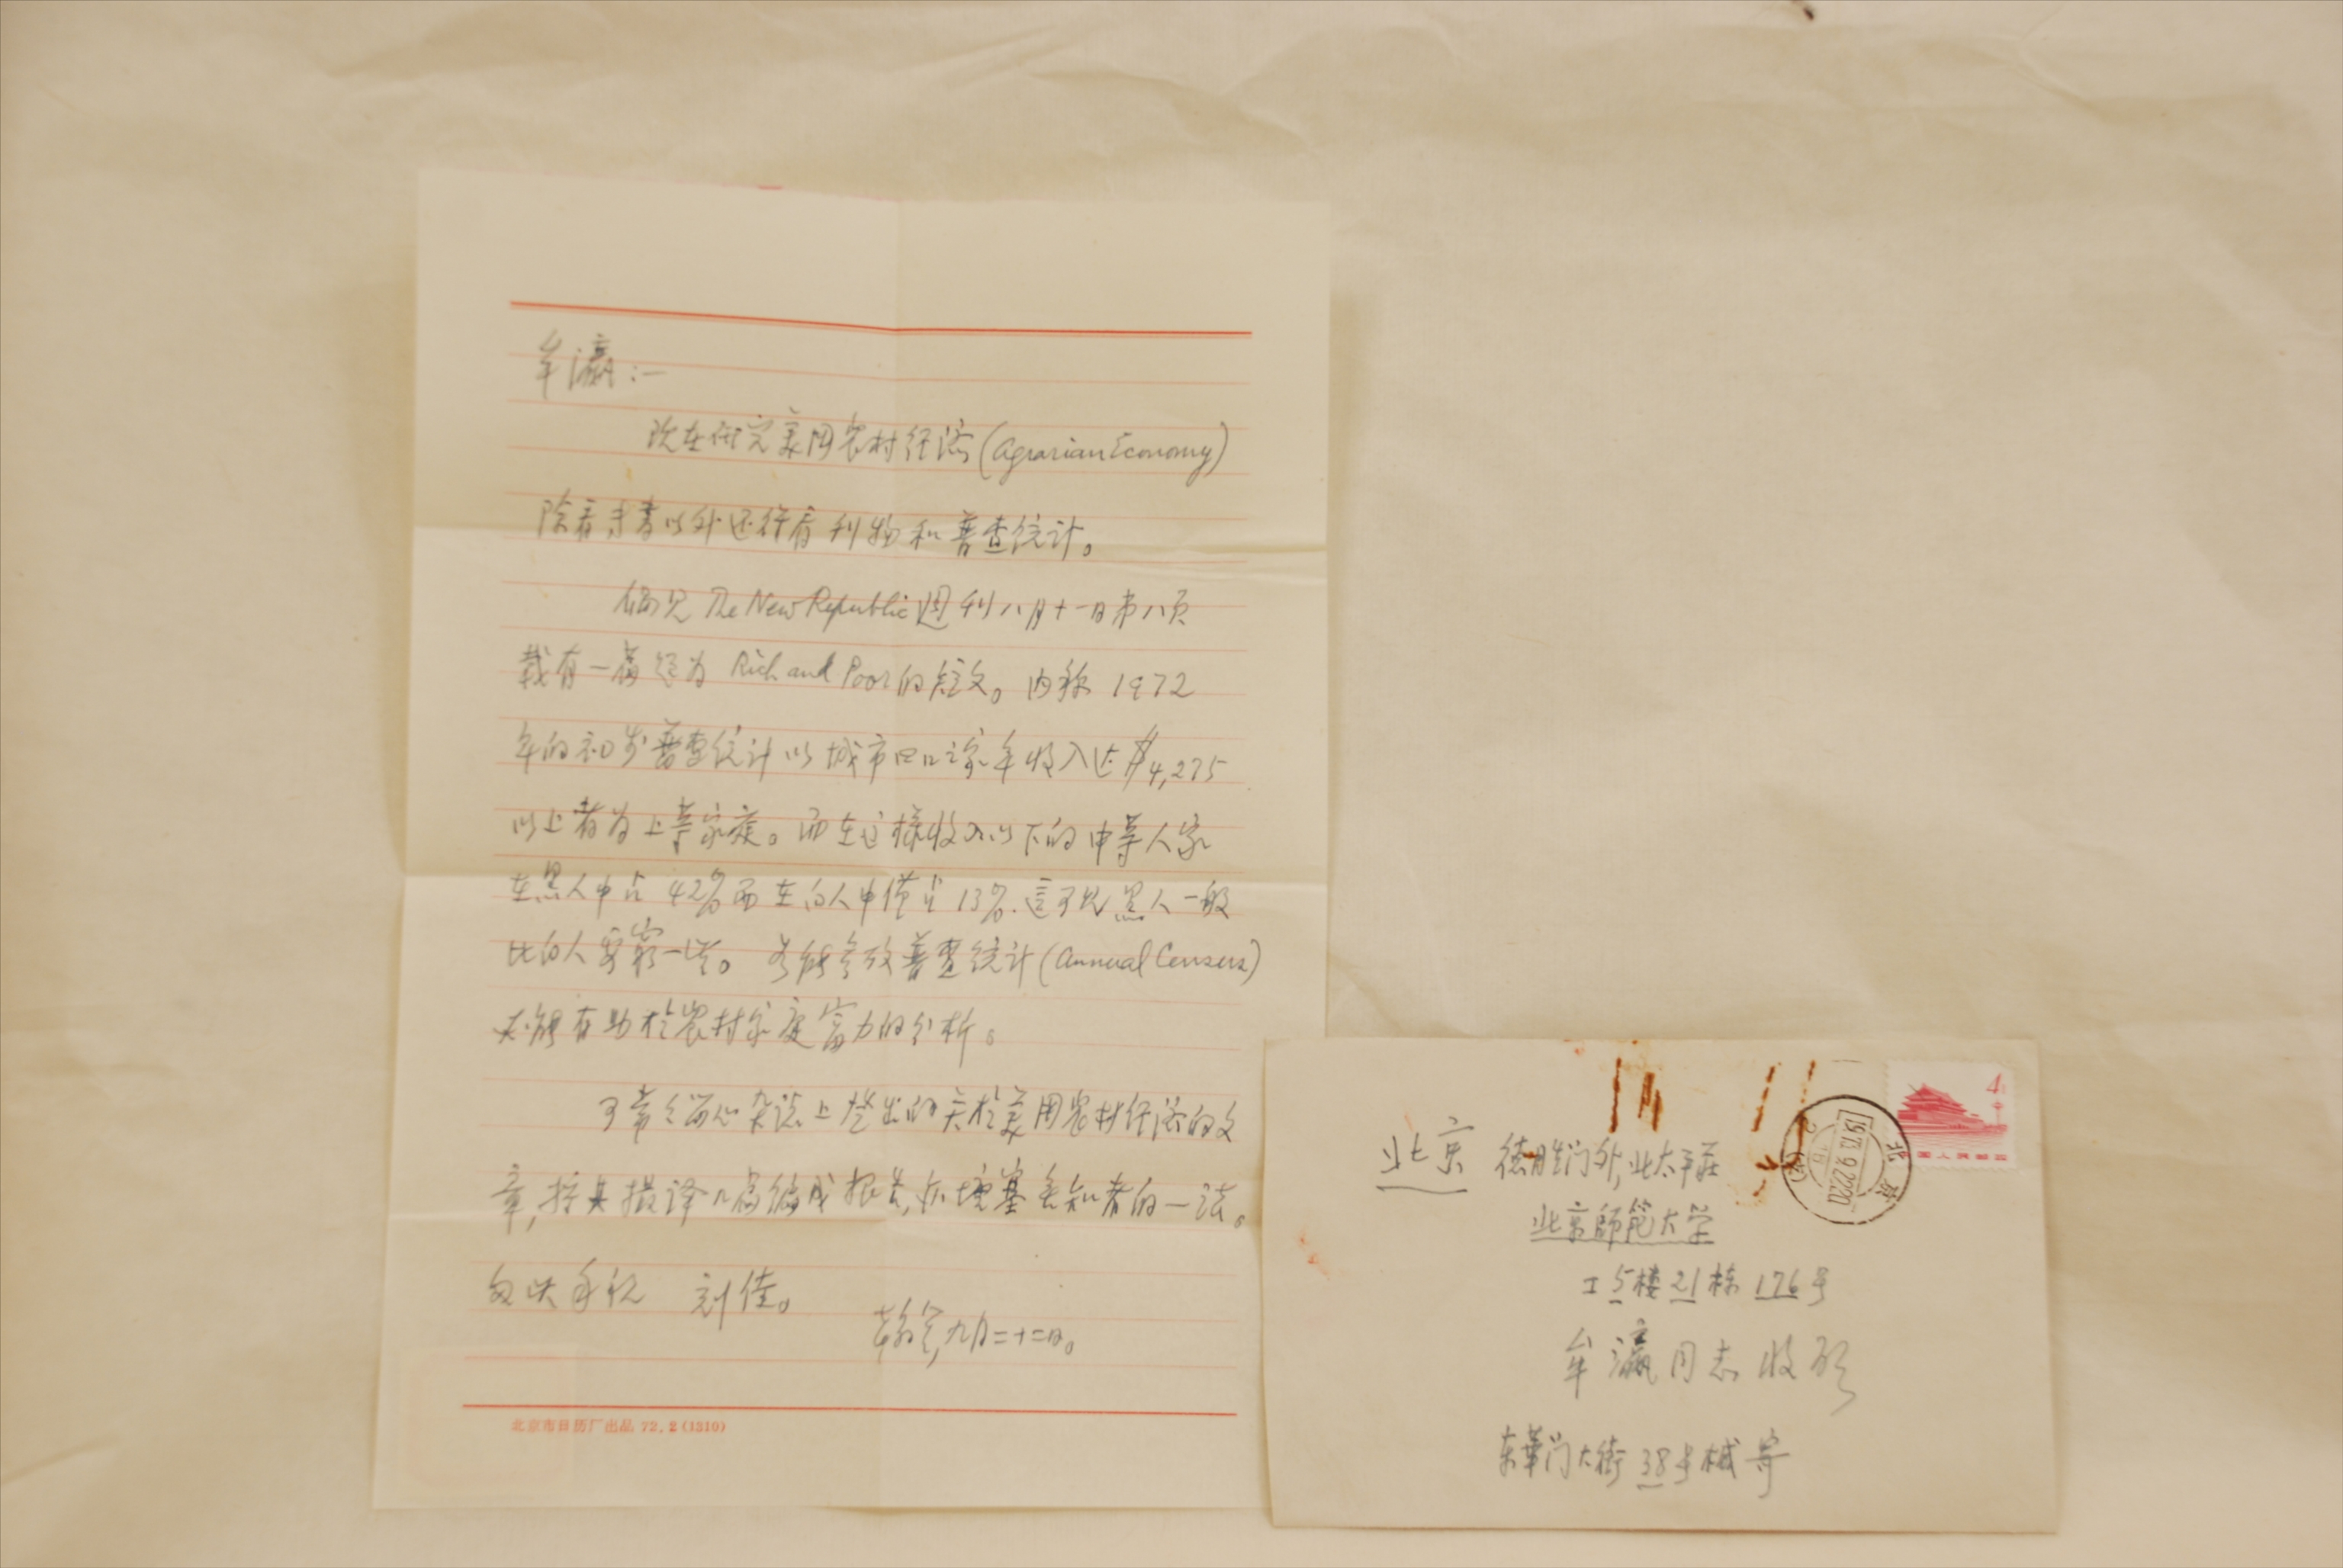 牟瀛:—
既在研究美国农村经济(Agrarian Economy)
除看专书以外还得看刊物和普查统计。
偶见 The New Republic 週刊八月十一日第八页
载有一篇 为 Rich and Poor 的短文。内称 1972
年的初步普查统计以城市四口之家年收入达 $4,275
以上者为上等家庭。而在这样收入以下的中等人家
在黑人中占 42% 而在白人中僅占 13%. 這可见黑人一般
比白人要窮一些。若能参攷普查统计(Annual Census)
有助於农村家庭富力的分析。
可常々留心杂誌上登出的关於美国农村经济的文
章, 择其 译几篇编成报告, 亦 塞 知者的一法。
匆此手祝 刻佳。
翰笙, 九月二十二日。
北京市日历厂出品 72.2(1310)
北京 德胜门外, 北太平庄
北京師範大学
工5楼21栋176号
牟瀛同志收啟
东華门大街38号 寄
4
中国人民邮政
北京
1973.9.22.20